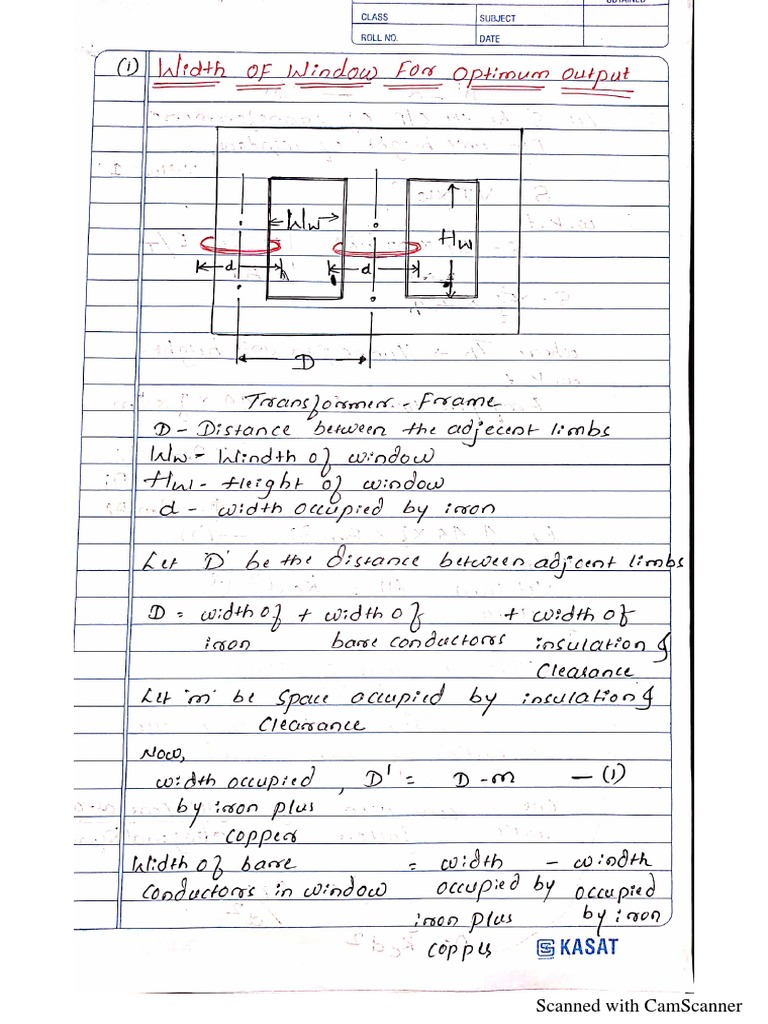 OBTAINED
CLASS SUBJECT
ROLL NO. DATE
(1) Width OF Window For Optimum Output
Ww
Hw
d d
D
Transformer - Frame
D - Distance between the adjecent limbs
Ww - Windth of window
Hw - Height of window
d - width occupied by iron
Let 'D' be the distance between adjicent limbs
D = width of + width of + width of
iron bare conductors insulation &
Clearance
Let 'm' be space occupied by insulation &
Clearance
Now,
width occupied , D' = D - m — (1)
by iron plus
copper
Width of bare = width - windth
conductors in window occupied by occupied
iron plus by iron
copper
KASAT
Scanned with CamScanner